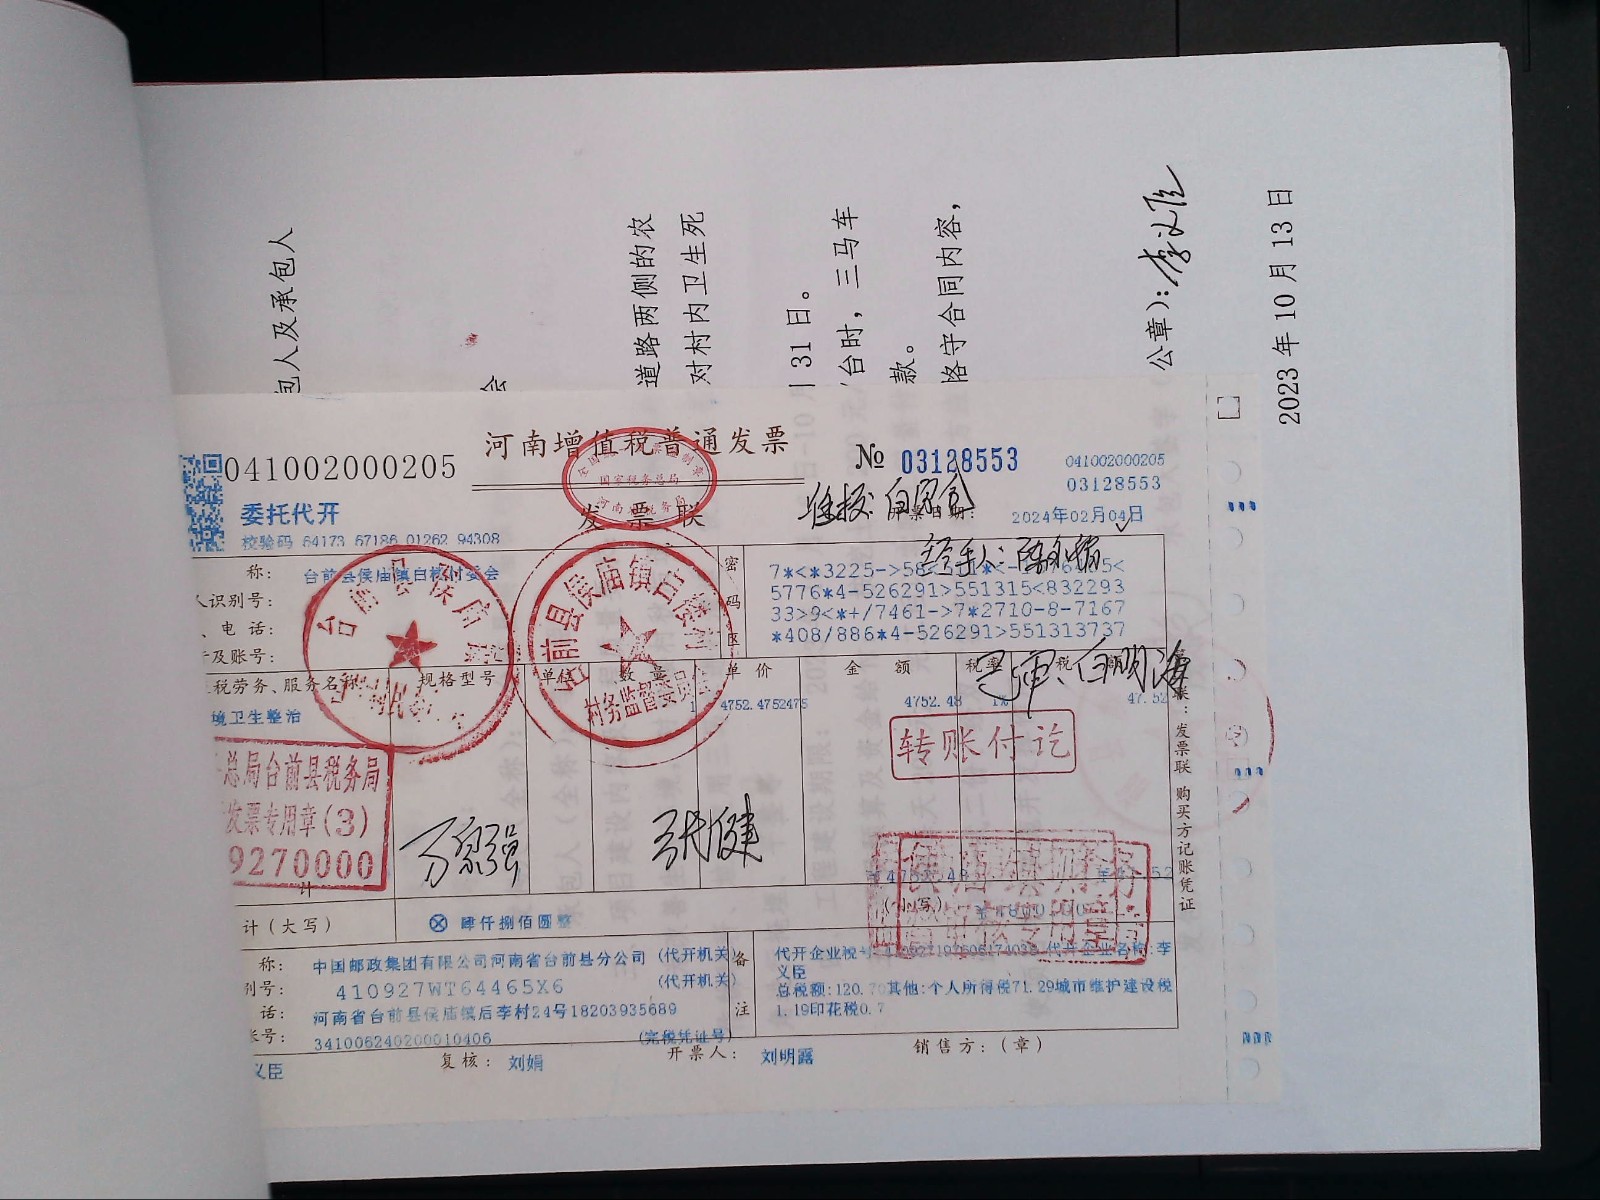 包人及承包人
会
道路两侧的农
对村内卫生死
31日。
台时，三马车
款。
恪守合同内容，
公章）：李义臣
2023年10月13日
河南增值税普通发票
041002000205
№ 03128553
041002000205
03128553
国家税务总局
委托代开
发票联
准报：白
2024年02月04日
校验码 64173 67186 01262 94308
称：
台前县侯庙镇白
村委会
人识别号：
、电 话：
及账号：
密码区
经手人：陈
5776*4-526291>551315<832293
33>9<*+/7461->7*2710-8-7167
*408/886*4-526291>551313737
税劳务、服务名称
规格型号
单位
数 量
单 价
金 额
税率
税
境卫生整治
1
4752.4752475
4752.48
1%
47.52
白明海
前县侯庙镇白
村务监督委员
转账付讫
总局台前县税务局
发票专用章(3)
9270000
张健
计（大写）
⊗ 肆仟捌佰圆整
（小写）
称：
中国邮政集团有限公司河南省台前县分公司（代开机关）
别号：
410927WT64465X6
（代开机关）
话：
河南省台前县侯庙镇后李村24号18203935689
账号：
341006240200010406
（完税凭证号）
备注
代开企业税号：
代开企业名称：李
义臣
总税额：120.70其他：个人所得税71.29城市维护建设税
1.19印花税0.7
义臣
复核：
刘娟
开票人：
刘明露
销售方：（章）
联：发票联 购买方记账凭证